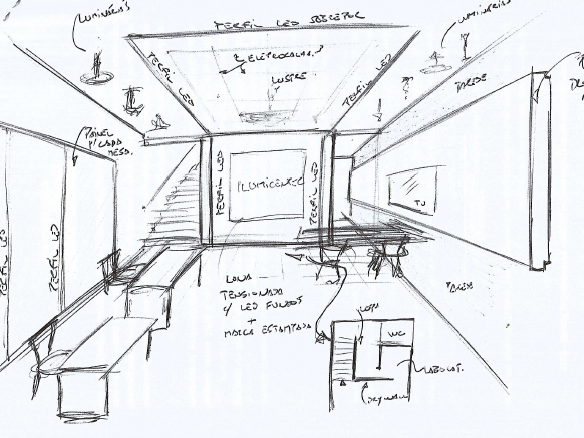 LUMINÁRIAS
PERFIL LED SOBREPOR
LUMINÁRIAS
PERFIL LED
ELETROCALHA
LUSTRE
PERFIL LED
PAREDE
PAINEL
P/ CADA
MESA.
PERFIL LED
ILUMICENTER
PERFIL LED
TV
PERFIL LED
PERFIL LED
LONA
TENSIONADA
C/ LED FUNDOS
+
MARCA ESTAMPADA
PAREDE
LOJA
WC
LABORAT.
DRYWALL